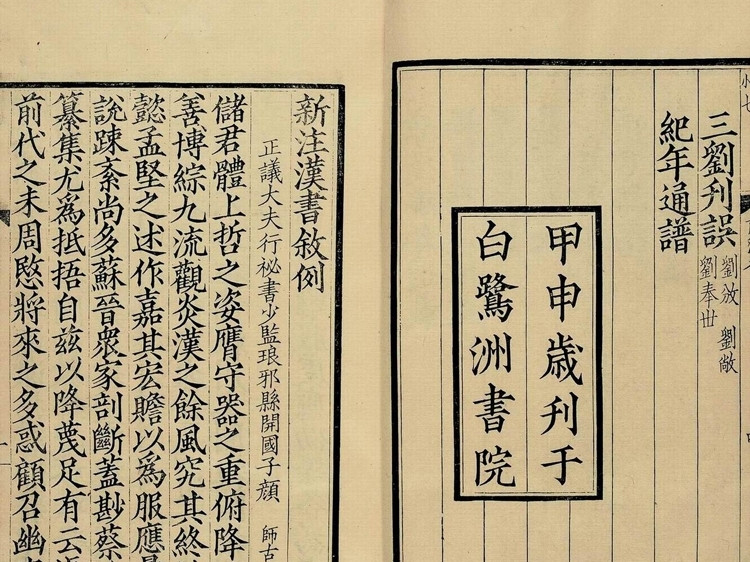 三劉刋誤 劉攽 劉敞
劉奉丗
紀年通譜
甲申歳刋于
白鷺洲書院
新注漢書敘例
正議大夫行祕書少監琅邪縣開國子顔 師古
儲君體上哲之姿膺守器之重俯降
善博綜九流觀炎漢之餘風究其終
懿孟堅之述作嘉其宏贍以爲服應
說踈紊尚多蘇晉衆家剖斷蓋尠蔡
纂集尤爲抵捂自兹以降蔑足有云
前代之未周愍將來之多惑顧召幽